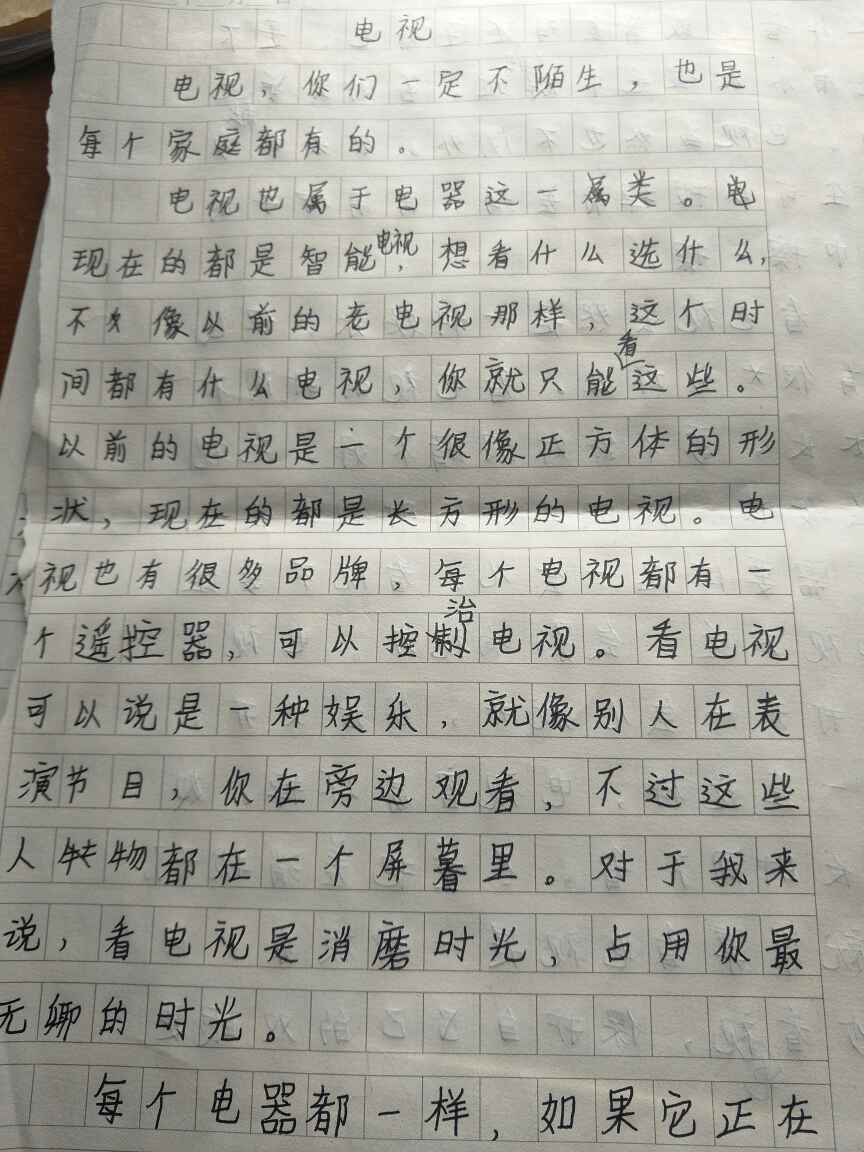 电视
电视，你们一定不陌生，也是
每个家庭都有的。
电视也属于电器这一属类。电
现在的都是智能电视，想看什么选什么，
不像以前的老电视那样，这个时
间都有什么电视，你就只能看这些。
以前的电视是一个很像正方体的形
状，现在的都是长方形的电视。电
视也有很多品牌，每个电视都有一
个遥控器，可以控治电视。看电视
可以说是一种娱乐，就像别人在表
演节目，你在旁边观看，不过这些
人物都在一个屏暮里。对于我来
说，看电视是消磨时光，占用你最
无卿的时光。
每个电器都一样，如果它正在